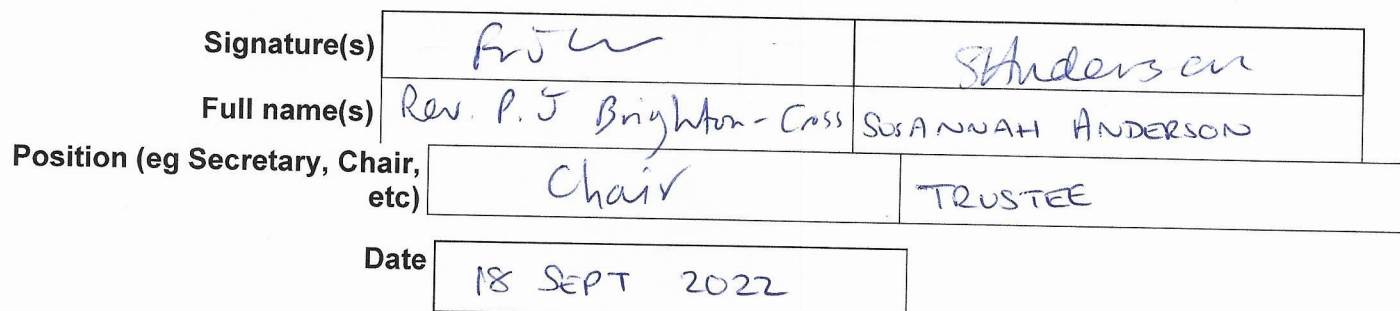 Signature(s) SHAnderson
Full name(s) Rev. P. J Brighton-Cross SUSANNAH ANDERSON
Position (eg Secretary, Chair,
etc) Chair TRUSTEE
Date 18 SEPT 2022